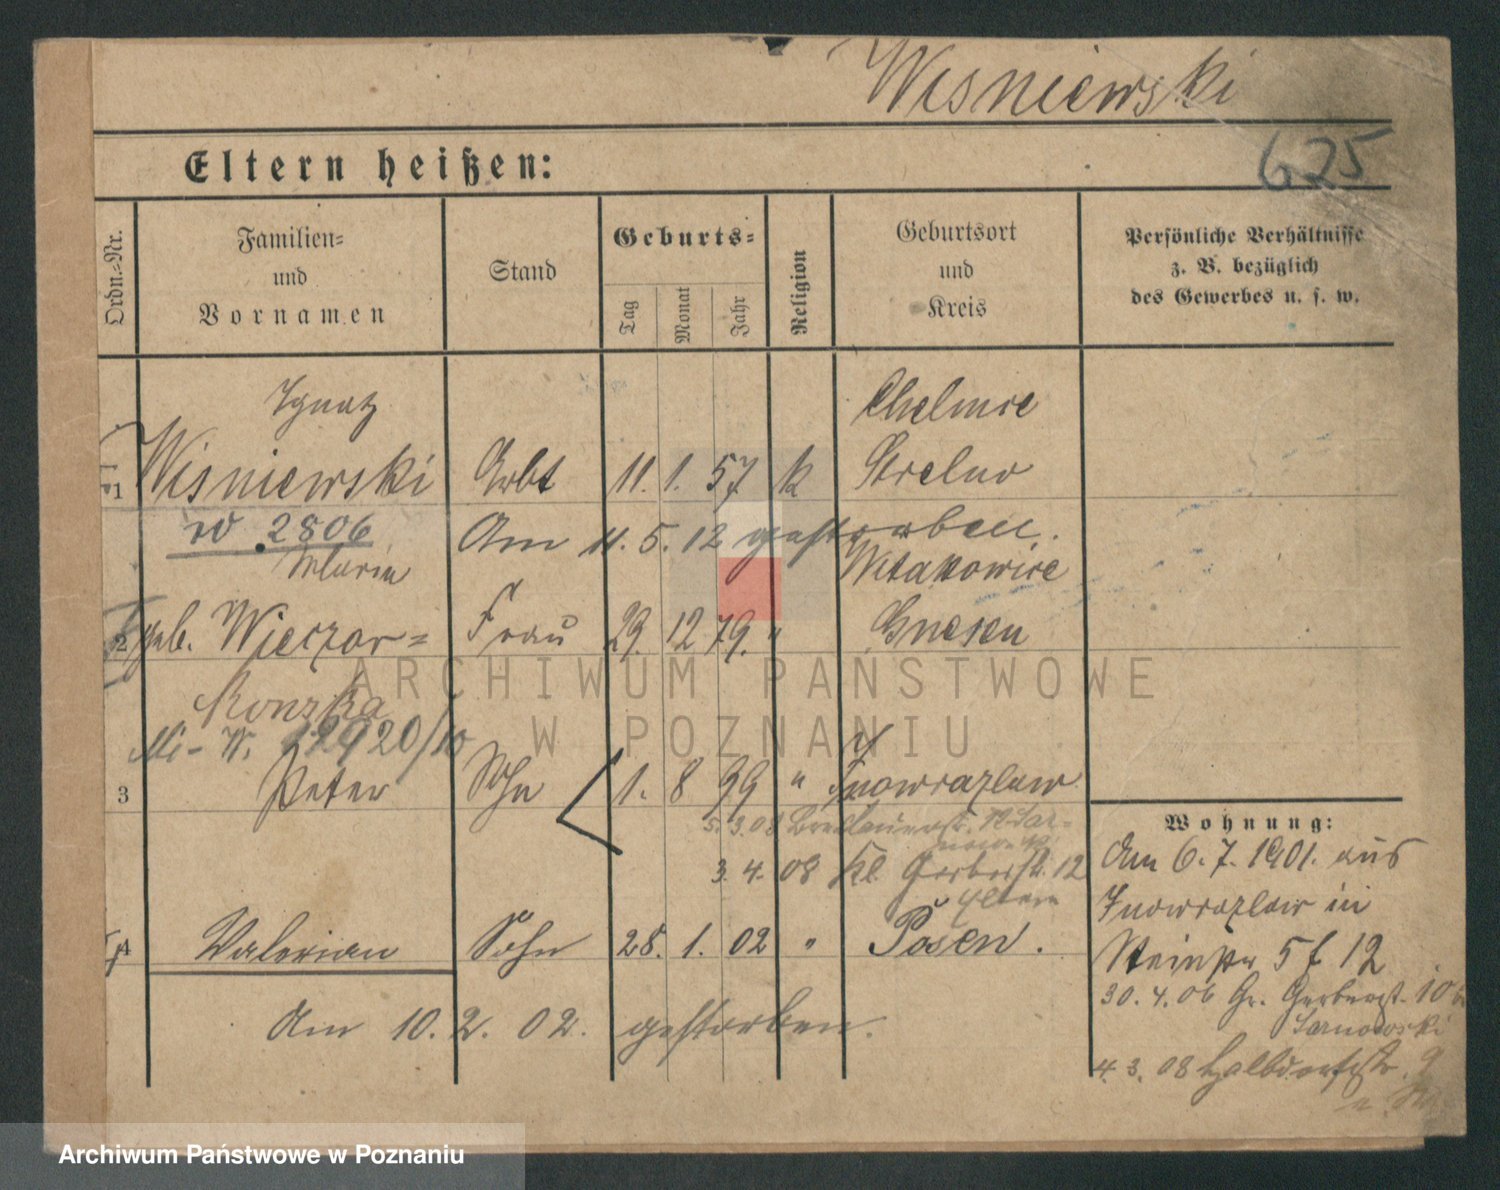 Wisniewski
625
Eltern heißen:
Ordn.-Nr.
Familien-
und
Vornamen
Stand
Geburts-
Tag
Monat
Jahr
Religion
Geburtsort
und
Kreis
Persönliche Verhältnisse
z. B. bezüglich
des Gewerbes u. s. w.
Ignatz Chelmce
1 Wisniewski Arbt 11. 1. 57 k Strelno
W 2806 Am 11. 5. 12 gestorben.
Maria Witakowice
2 geb. Wieczor= Frau 29. 12 79. " Gnesen
konska
12920/10
3 Peter Sohn 1. 8 99 " Inowrazlaw
5. 3. 08
3. 4. 08 Kl. Gerberstr. 12
Eltern
4 Valerian Sohn 28. 1. 02 " Posen.
Am 10. 2. 02. gestorben.
Wohnung:
Am 6. 7. 1901. aus
Inowrazlaw in
12
30. 4. 06 Gr. Gerberst. 10
Sarnowski
4. 3. 08 Halbdorfstr.
ARCHIWUM PAŃSTWOWE
W POZNANIU
Archiwum Państwowe w Poznaniu